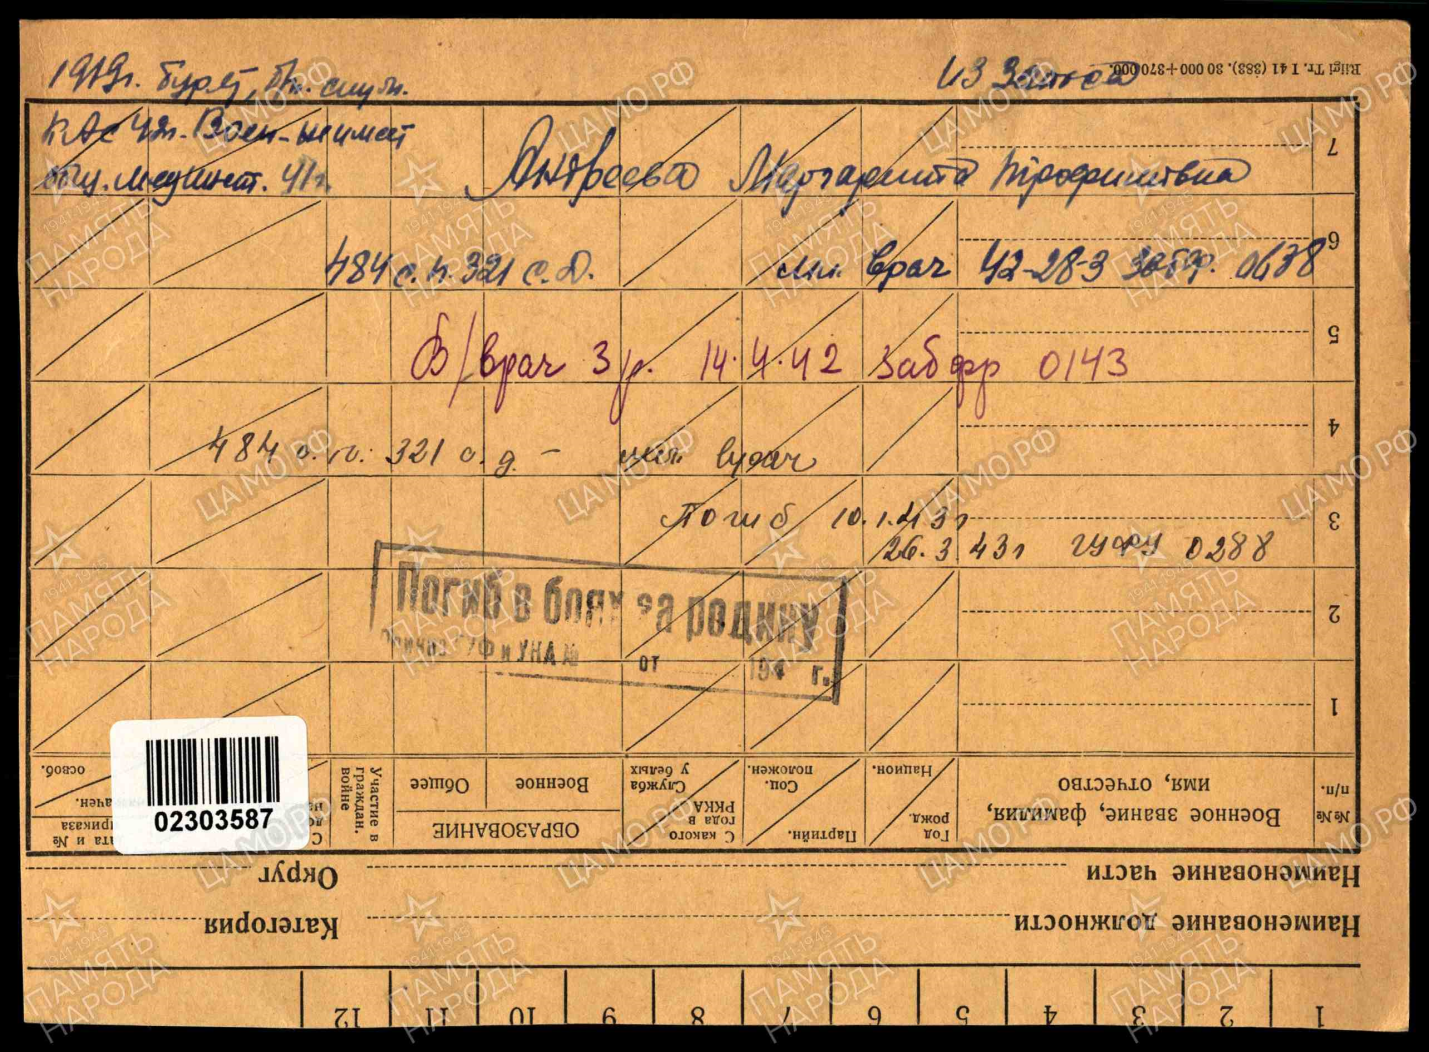 1919г. бурят, вл. служ. из запаса
Riigi Tr. I 41 (383). 30 000+370 000.
КА с 42г. Воен-
мединст. 41г.
Андреева Маргарита Трофимовна
7
484 с.п. 321 с.д. мл. врач 42-28-3 забфр. 0638
6
В/врач 3 р. 14.4.42 Забфр 0143
5
484 с.п. 321 с.д. - мл. врач
4
Погиб 10.1.43г
26.3.43г ГУФУ 0288
3
Погиб в боях за родину
Приказ ГУФ и УНА № от 194 г.
2
1
№№ п/п.
Военное звание, фамилия, имя, отчество
Год рожд.
Национ.
Партийн.
Соц. положен.
С какого года в РККА
Служба у белых
ОБРАЗОВАНИЕ
Военное
Общее
Участие в граждан. войне
освоб.
02303587
Наименование части
Округ
Наименование должности
Категория
1 2 3 4 5 6 7 8 9 10 11 12
ЦАМО.РФ
1941-1945
ПАМЯТЬ НАРОДА